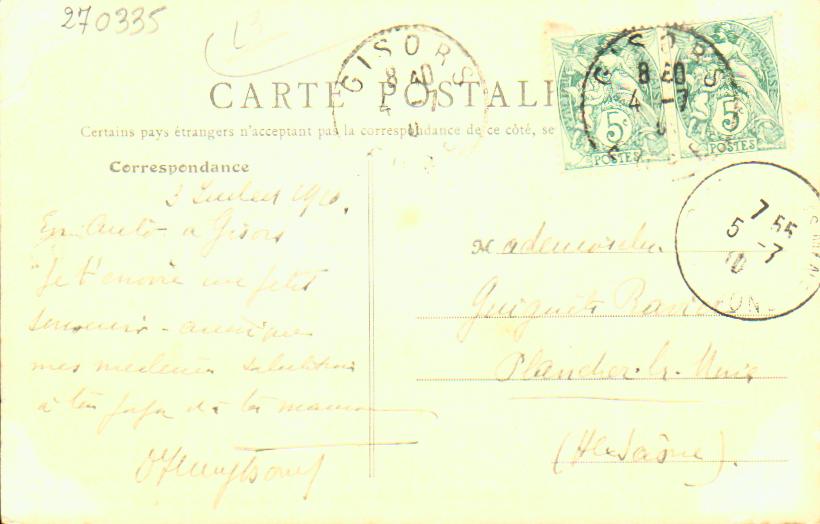 270335
13
GISORS
8 40
4 -7
GISORS
8 40
4 -7
5c
POSTES
5c
POSTES
CARTE POSTAL
Certains pays étrangers n'acceptant pas la correspondance de ce côté, se
Correspondance
3 Juillet 1910.
En auto à Gisors
Je t'envoie un petit
souvenir
mes meilleures salutations
à ton papa et à ta maman
7 55
5 -7
10
Mademoiselle
Plancher-les-Mines
(Hte Saône).